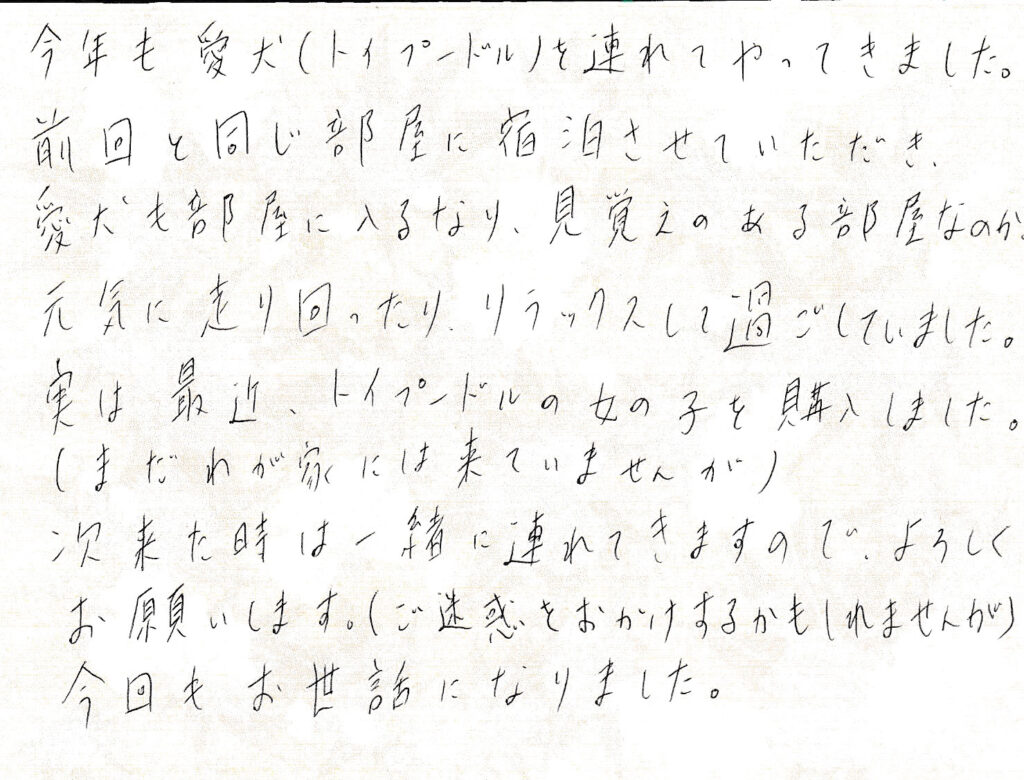 今年も愛犬(トイプードル)を連れてやってきました。
前回と同じ部屋に宿泊させていただき、
愛犬も部屋に入るなり、見覚えのある部屋なのか、
元気に走り回ったり、リラックスして過ごしていました。
実は最近、トイプードルの女の子を購入しました。
(まだわが家には来ていませんが)
次来た時は一緒に連れてきますので、よろしく
お願いします。(ご迷惑をおかけするかもしれませんが)
今回もお世話になりました。